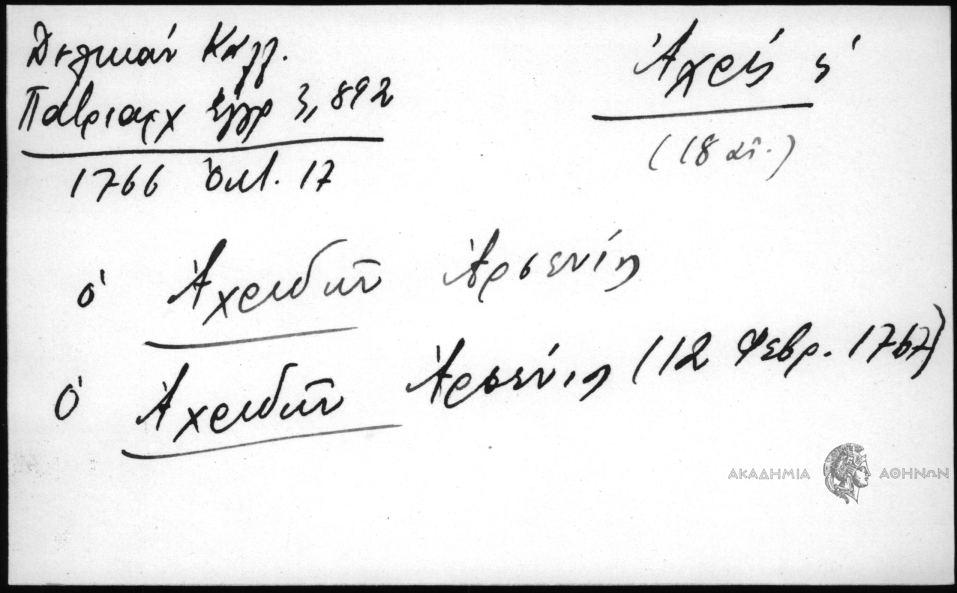 Δελικάν Καλλ.
Πατριαρχ ἔγγρ 3, 892
1766 Ὀκτ. 17
Ἀχρίς ἡ
(18 αἰ.)
ὁ Ἀχριδῶν Ἀρσένιος
ὁ Ἀχριδῶν Ἀρσένιος (12 Φεβρ. 1767)
ΑΚΑΔΗΜΙΑ ΑΘΗΝΩΝ